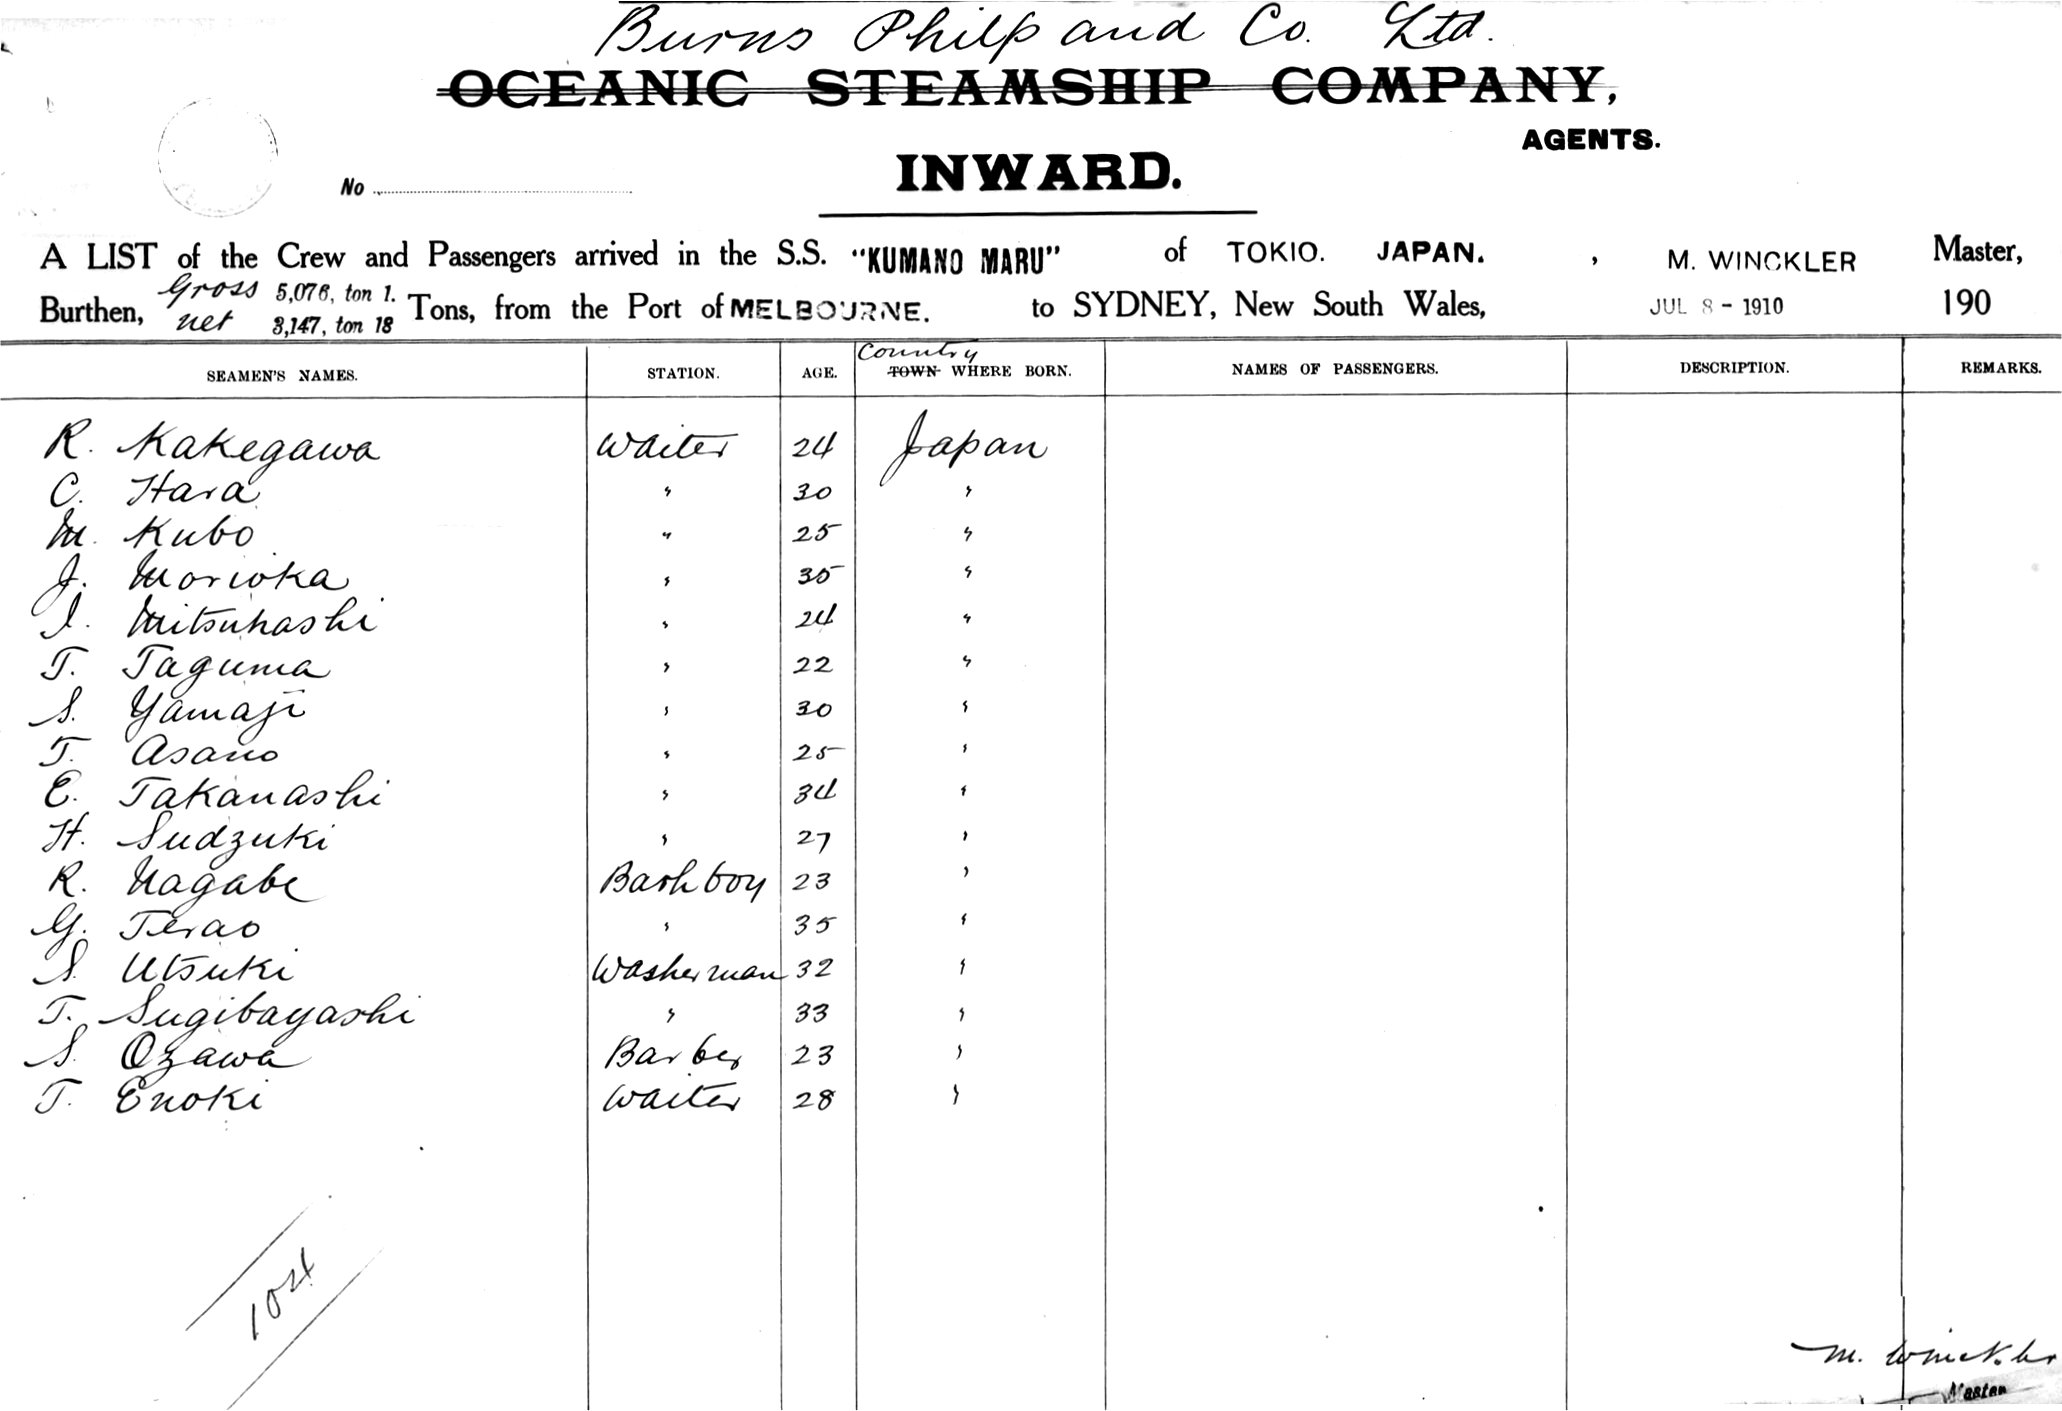 Burns Philp and Co. Ltd.
OCEANIC STEAMSHIP COMPANY,
AGENTS.
INWARD.
No
A LIST of the Crew and Passengers arrived in the S.S. "KUMANO MARU" of TOKIO. JAPAN. , M. WINCKLER Master,
Burthen, Gross 5,076, ton 1. net 3,147, ton 18 Tons, from the Port of MELBOURNE. to SYDNEY, New South Wales, JUL 8 - 1910 190
SEAMEN'S NAMES. STATION. AGE. Country TOWN WHERE BORN. NAMES OF PASSENGERS. DESCRIPTION. REMARKS.
R. Kakegawa Waiter 24 Japan
C. Hara " 30 "
M. Kubo " 25 "
J. Morioka " 35 "
I. Mitsuhashi " 24 "
T. Taguma " 22 "
S. Yamaji " 30 "
T. Asano " 25 "
E. Takanashi " 34 "
H. Sudzuki " 27 "
R. Nagabe Bathboy 23 "
G. Terao " 35 "
S. Utsuki Washerman 32 "
T. Sugibayashi " 33 "
S. Ozawa Barber 23 "
T. Enoki Waiter 28 "
104
M. Winckler
Master